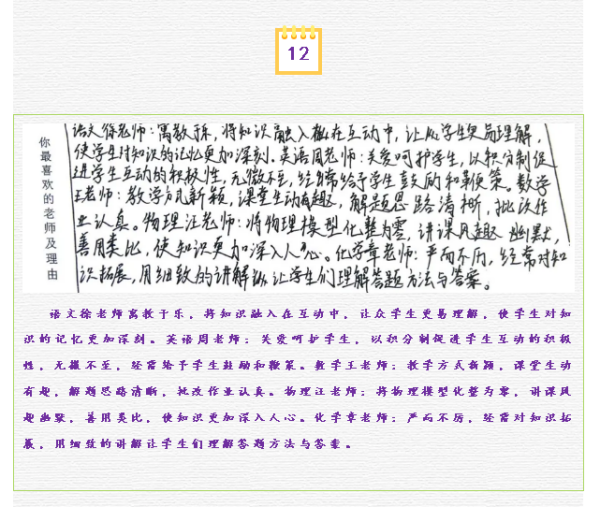 12
你最喜欢的老师及理由
语文徐老师：寓教于乐，将知识融入在互动中，让众学生更易理解，
使学生对知识的记忆更加深刻。英语周老师：关爱呵护学生，以积分制促
进学生互动的积极性，无微不至，经常给予学生鼓励和鞭策。数学
王老师：教学方式新颖，课堂生动有趣，解题思路清晰，批改作
业认真。物理汪老师：将物理模型化整为零，讲课风趣幽默，
善用类比，使知识更加深入人心。化学章老师：严而不厉，经常对知
识拓展，用细致的讲解让学生们理解答题方法与答案。
语文徐老师寓教于乐，将知识融入在互动中，让众学生更易理解，使学生对知
识的记忆更加深刻。英语周老师：关爱呵护学生，以积分制促进学生互动的积极
性，无微不至，经常给予学生鼓励和鞭策。数学王老师：教学方式新颖，课堂生动
有趣，解题思路清晰，批改作业认真。物理汪老师：将物理模型化整为零，讲课风
趣幽默，善用类比，使知识更加深入人心。化学章老师：严而不厉，经常对知识拓
展，用细致的讲解让学生们理解答题方法与答案。